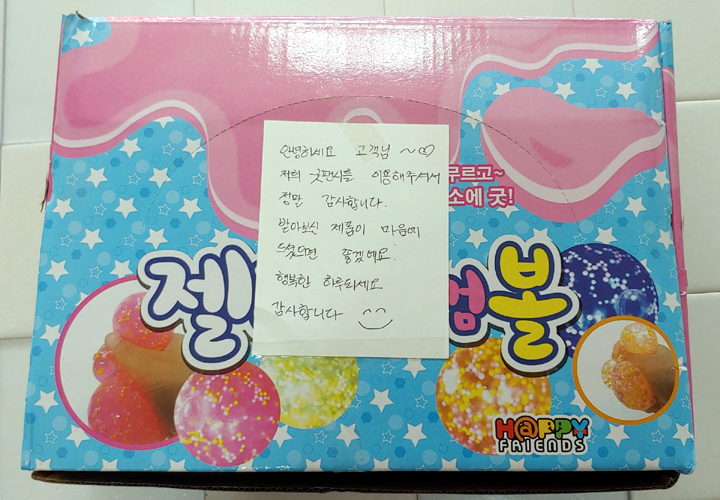 안녕하세요 고객님 ~♡
저희 굿판시를 이용해주셔서
정말 감사합니다.
받아보신 제품이 마음에
드셨으면 좋겠에요.
행복한 하루되세요
감사합니다
무르고~
소에 굿!
젤
볼
HAPPY
FRIENDS